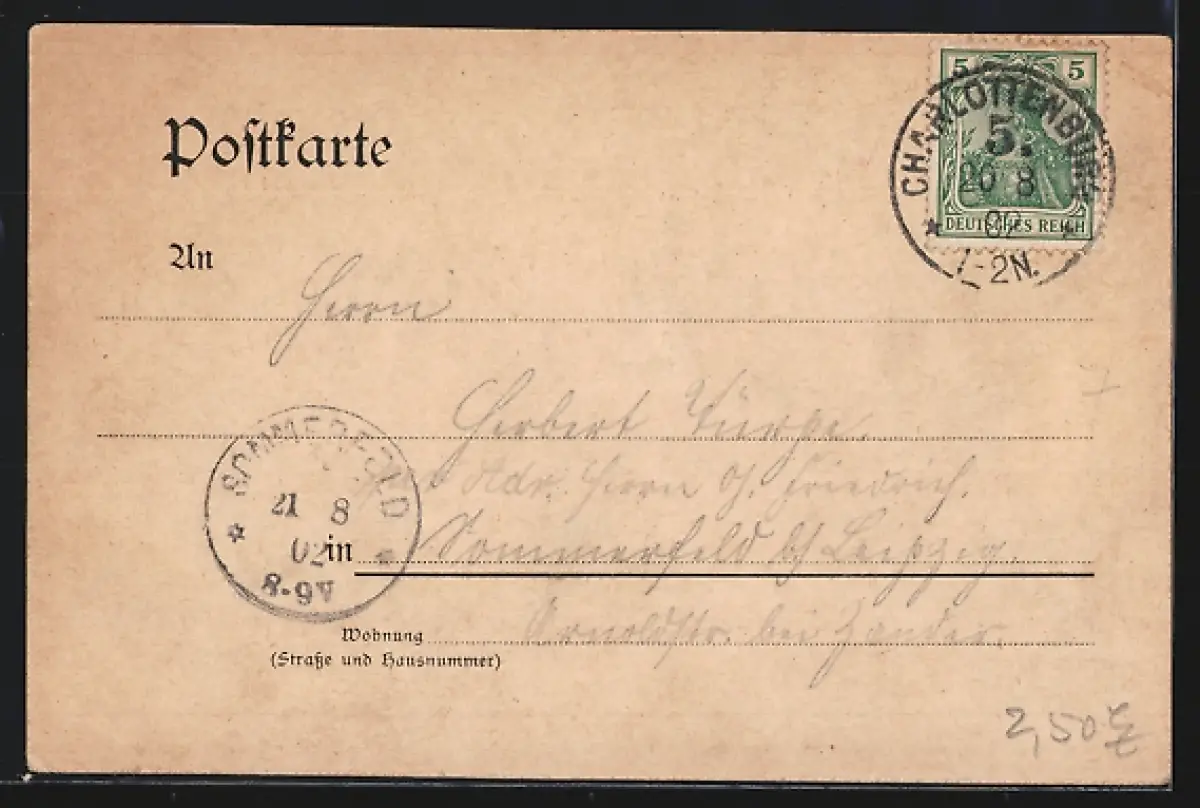 Postkarte
5 5
DEUTSCHES REICH
CHARLOTTENBURG
5.
20 8
02
1-2N.
An
Herrn
Herbert Türpe.
Adr. Herrn O. Friedrich.
SOMMERFELD
21 8
02
8-9V
in Sommerfeld b/ Leipzig.
Wohnung Arnoldstr. bei Zander.
(Straße und Hausnummer)
2,50